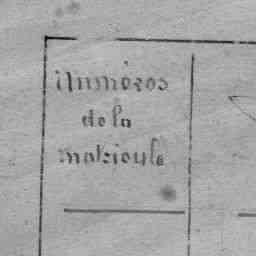 Numéros
de la
matricule